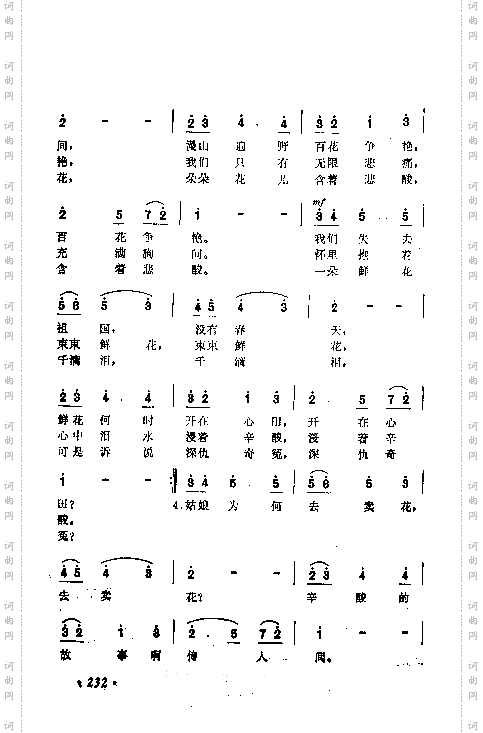 2 - - | 2 3 4. 4 | 3 2 1 3
间， 漫山遍野 百花争艳，
艳， 我们只有 无限悲痛，
花， 朵朵花儿 含着悲酸，
mf
2 5 7 2 | 1 - - | 3 4 5. 5
百花争艳。 我们失去
充满胸间。 怀里抱着
含着悲酸。 一朵鲜花
5 6 5 3 | 4 5 4 3 | 2 - -
祖国， 没有春天，
束束鲜花，束束鲜花，
千滴泪， 千滴泪，
2 3 4. 4 | 3 2 1 3 | 2 2
鲜花何时 开在心田，开在心
心中泪水 浸着辛酸，浸着辛
可是诉说 深仇奇冤，深仇奇
1 - - :| 3 4 5. 5 | 5 6 5 5
田？ 4.姑娘为何 去卖花，
酸。
冤？
4 5 4 3 | 2 - - | 2 3 4 4
去卖花？ 辛酸的
3 2 1. 3 | 2. 5 7 2 | 1 - -
故事啊 传人间。
232
词曲网
词曲网
词曲网
词曲网
词曲网
词曲网
词曲网
词曲网
词曲网
词曲网